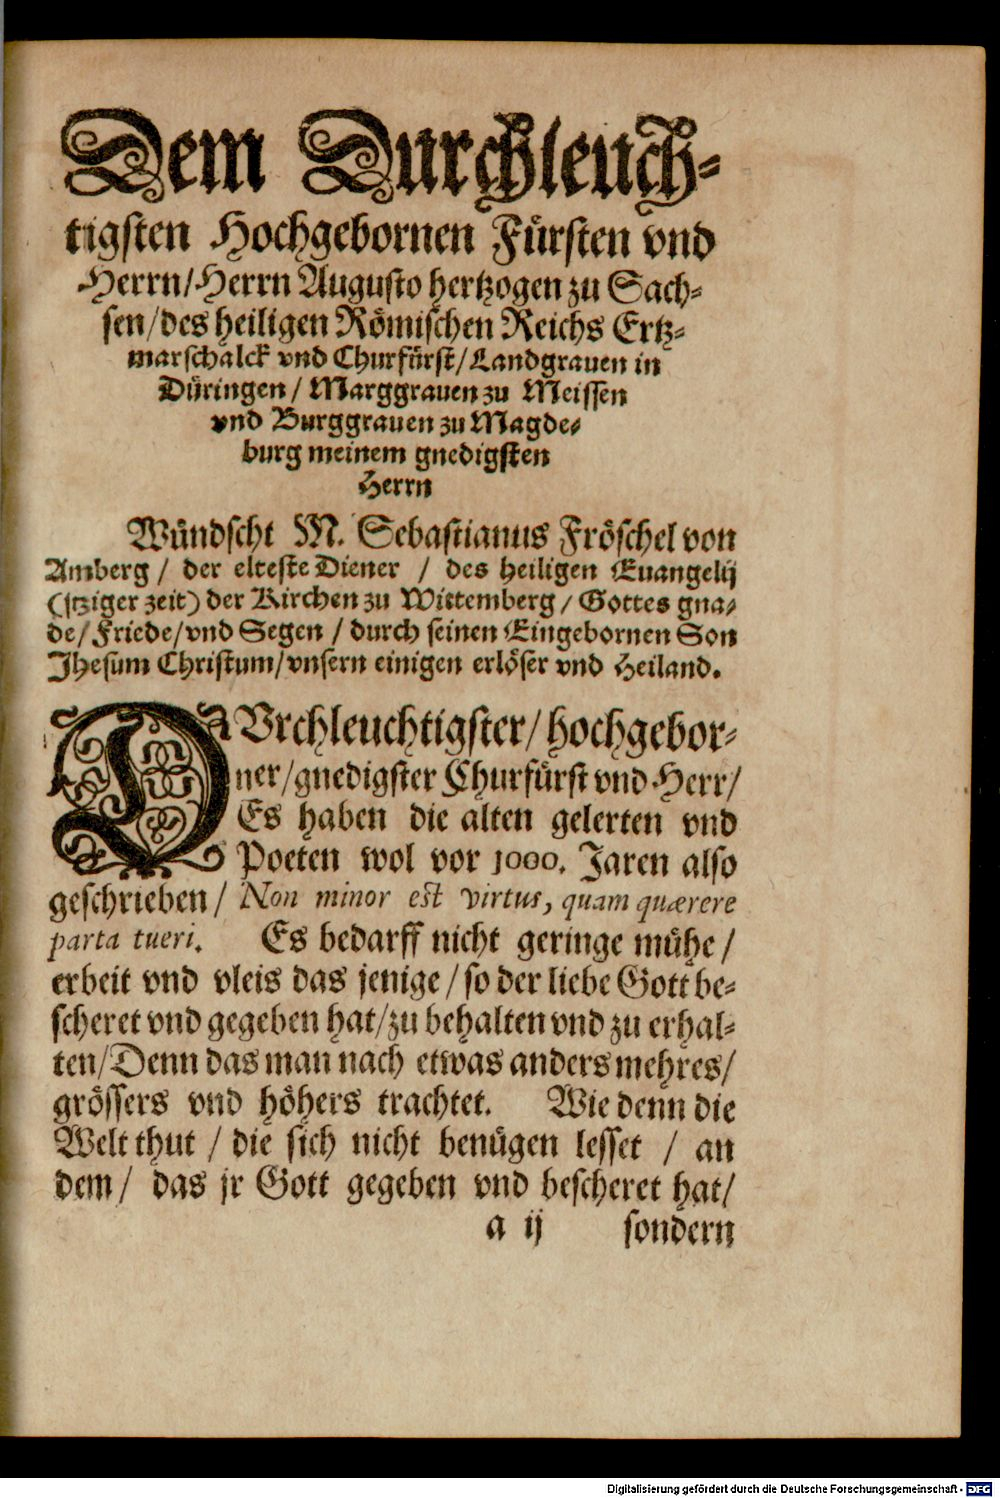 Dem Durchleuch-
tigsten Hochgebornen Fürsten vnd
Herrn/Herrn Augusto hertzogen zu Sach-
sen/des heiligen Römischen Reichs Ertz-
marschalck vnd Churfürst/Landgrauen in
Düringen/ Marggrauen zu Meissen
vnd Burggrauen zu Magde-
burg meinem gnedigsten
Herrn
Wündscht M. Sebastianus Fröschel von
Amberg / der elteste Diener / des heiligen Euangelij
(jtziger zeit) der Kirchen zu Wittemberg/ Gottes gna-
de/Friede/vnd Segen / durch seinen Eingebornen Son
Jhesum Christum/vnsern einigen erlöser vnd Heiland.
DVrchleuchtigster/hochgebor-
ner/gnedigster Churfürst vnd Herr/
Es haben die alten gelerten vnd
Poeten wol vor 1000. Jaren also
geschrieben/ Non minor est virtus, quam quærere
parta tueri. Es bedarff nicht geringe mühe/
erbeit vnd vleis das jenige/so der liebe Gott be-
scheret vnd gegeben hat/zu behalten vnd zu erhal-
ten/Denn das man nach etwas anders mehres/
grössers vnd höhers trachtet. Wie denn die
Welt thut / die sich nicht benügen lesset / an
dem/ das jr Gott gegeben vnd bescheret hat/
a ij sondern
Digitalisierung gefördert durch die Deutsche Forschungsgemeinschaft - DFG